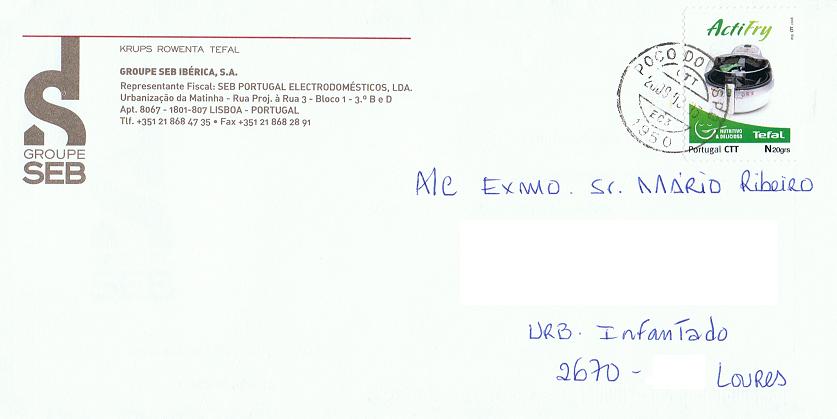 KRUPS ROWENTA TEFAL
GROUPE SEB IBÉRICA, S.A.
Representante Fiscal: SEB PORTUGAL ELECTRODOMÉSTICOS, LDA.
Urbanização da Matinha - Rua Proj. à Rua 3 - Bloco 1 - 3.º B e D
Apt. 8067 - 1801-807 LISBOA - PORTUGAL
Tlf. +351 21 868 47 35 • Fax +351 21 868 28 91
GROUPE
SEB
ActiFry
POÇO DO BISPO
CTT
EC3
1950
NUTRITIVO
& DELICIOSO
Tefal
Portugal CTT N20grs
A/C EXMO. Sr. MÁRIO Ribeiro
URB. Infantado
2670 - LOURES